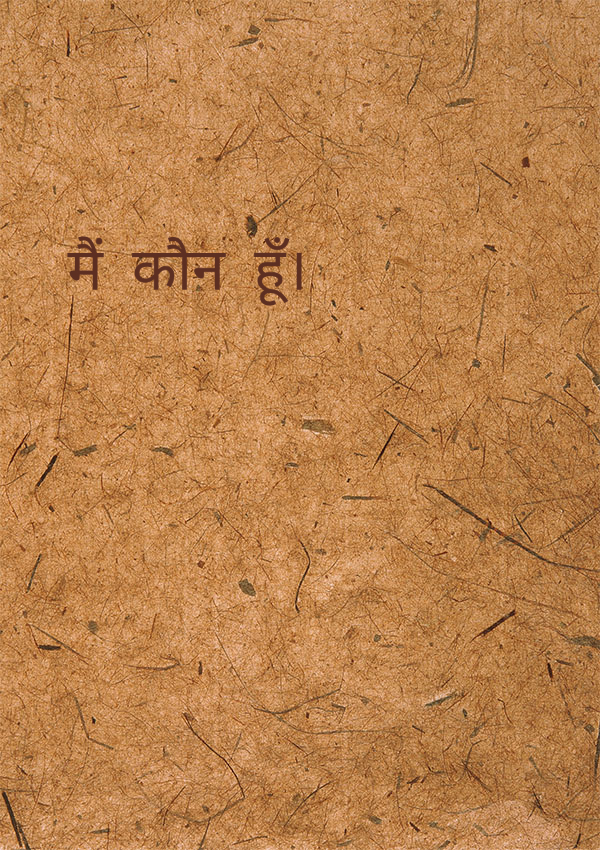 मैं कौन हूँ।